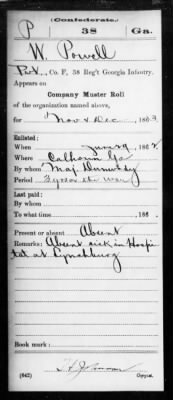 (Confederate.)
P 38 Ga.
W. Powell
Pvt., Co. F, 38 Reg't Georgia Infantry.
Appears on
Company Muster Roll
of the organization named above,
for Nov & Dec, 1863.
Enlisted:
When 186
Where Calhoun Ga
By whom Maj.
Period 3 years or the war
Last paid:
By whom
To what time , 186 .
Present or absent Absent
Remarks: Absent sick in Hospi
tal at Lynchburg
Book mark:
(642) Copyist.